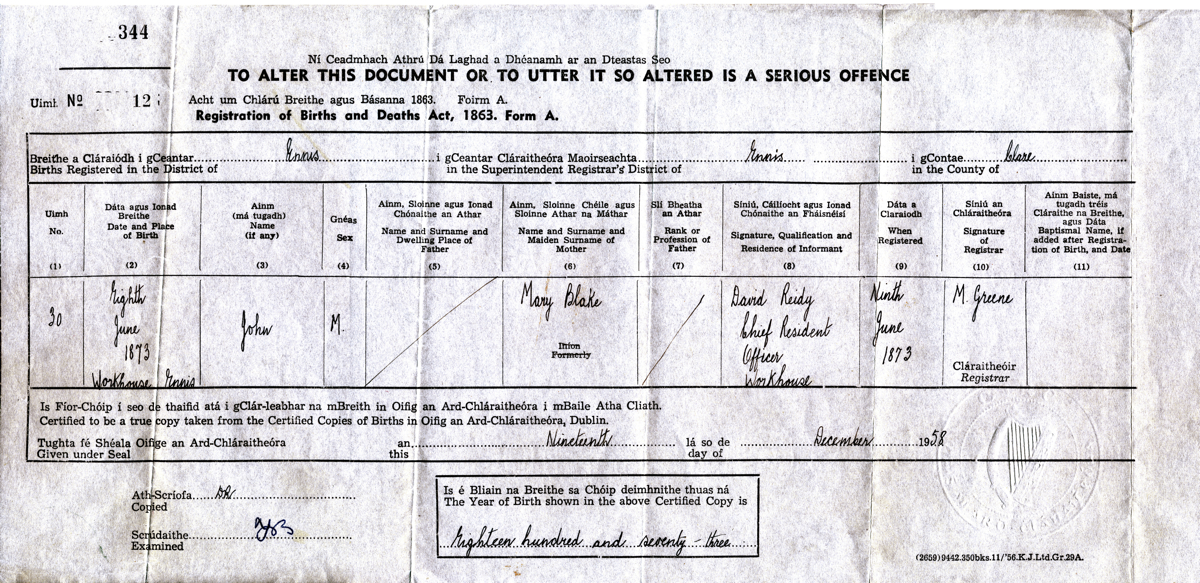 344
Ní Ceadmhach Athrú Dá Laghad a Dhéanamh ar an Dteastas Seo
TO ALTER THIS DOCUMENT OR TO UTTER IT SO ALTERED IS A SERIOUS OFFENCE
Uimh Nº 12
Acht um Chlárú Breithe agus Básanna 1863. Foirm A.
Registration of Births and Deaths Act, 1863. Form A.
Breithe a Cláraíodh i gCeantar Ennis i gCeantar Cláraitheóra Maoirseachta Ennis i gContae Clare
Births Registered in the District of in the Superintendent Registrar's District of in the County of
Uimh
No.
(1)
Dáta agus Ionad
Breithe
Date and Place
of Birth
(2)
Ainm
(má tugadh)
Name
(if any)
(3)
Gnéas
Sex
(4)
Ainm, Sloinne agus Ionad
Chónaithe an Athar
Name and Surname and
Dwelling Place of
Father
(5)
Ainm, Sloinne Chéile agus
Sloinne Athar na Máthar
Name and Surname and
Maiden Surname of
Mother
(6)
Slí Bheatha
an Athar
Rank or
Profession of
Father
(7)
Síniú, Cáilíocht agus Ionad
Chónaithe an Fháisnéisí
Signature, Qualification and
Residence of Informant
(8)
Dáta a
Claraíodh
When
Registered
(9)
Síniú an
Chláraitheóra
Signature
of
Registrar
(10)
Ainm Baiste, má
tugadh tréis
Cláraithe na Breithe,
agus Dáta
Baptismal Name, if
added after Registra-
tion of Birth, and Date
(11)
30
Eighth
June
1873
Workhouse Ennis
John
M.
Mary Blake
Iníon
Formerly
David Reidy
Chief Resident
Officer
Workhouse
Ninth
June
1873
M. Greene
Cláraitheóir
Registrar
Is Fíor-Chóip í seo de thaifid atá i gClár-leabhar na mBreith in Oifig an Ard-Chláraitheóra i mBaile Atha Cliath.
Certified to be a true copy taken from the Certified Copies of Births in Oifig an Ard-Chláraitheóra, Dublin.
Tughta fé Shéala Oifige an Ard-Chláraitheóra an Nineteenth lá so de December 1958
Given under Seal this day of
Ath-Scríofa DR
Copied
Scrúdaithe
Examined
Is é Bliain na Breithe sa Chóip deimhnithe thuas ná
The Year of Birth shown in the above Certified Copy is
Eighteen hundred and seventy-three
(2659)9442.350bks.11/'56.K.J.Ltd.Gr.29A.